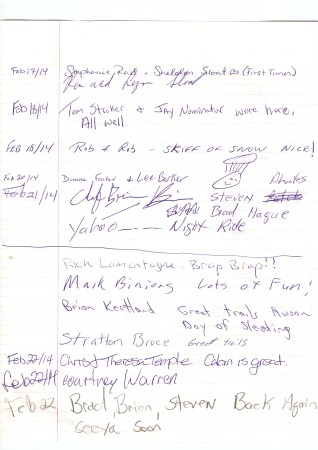 Feb 17/14 Stephanie, Reid + Sheldon (First Timer)
and Ryan
Feb 18/14 Tom Stricker & Jay Nominator were here,
All well.
FEB 18/14 Rob & Rob - SKIFF OF SNOW NICE!
Feb 20/14 Duane & Lee Butler
Feb 21/14 Brian STEVEN
Brad Hague
Yahoo --- Night Ride
Rich Lamontagne. Brap Brap!!
Mark Binions Lots of Fun!
Brian Kertland Great trails
Day of Sledding
Stratton Bruce Great trails
Feb 22/14 Chris & Theresa Temple Cabin is great.
Feb 22/14 Courtney Warren
Feb 22 Brad, Brion, Steven Back Again
Seeya Soon